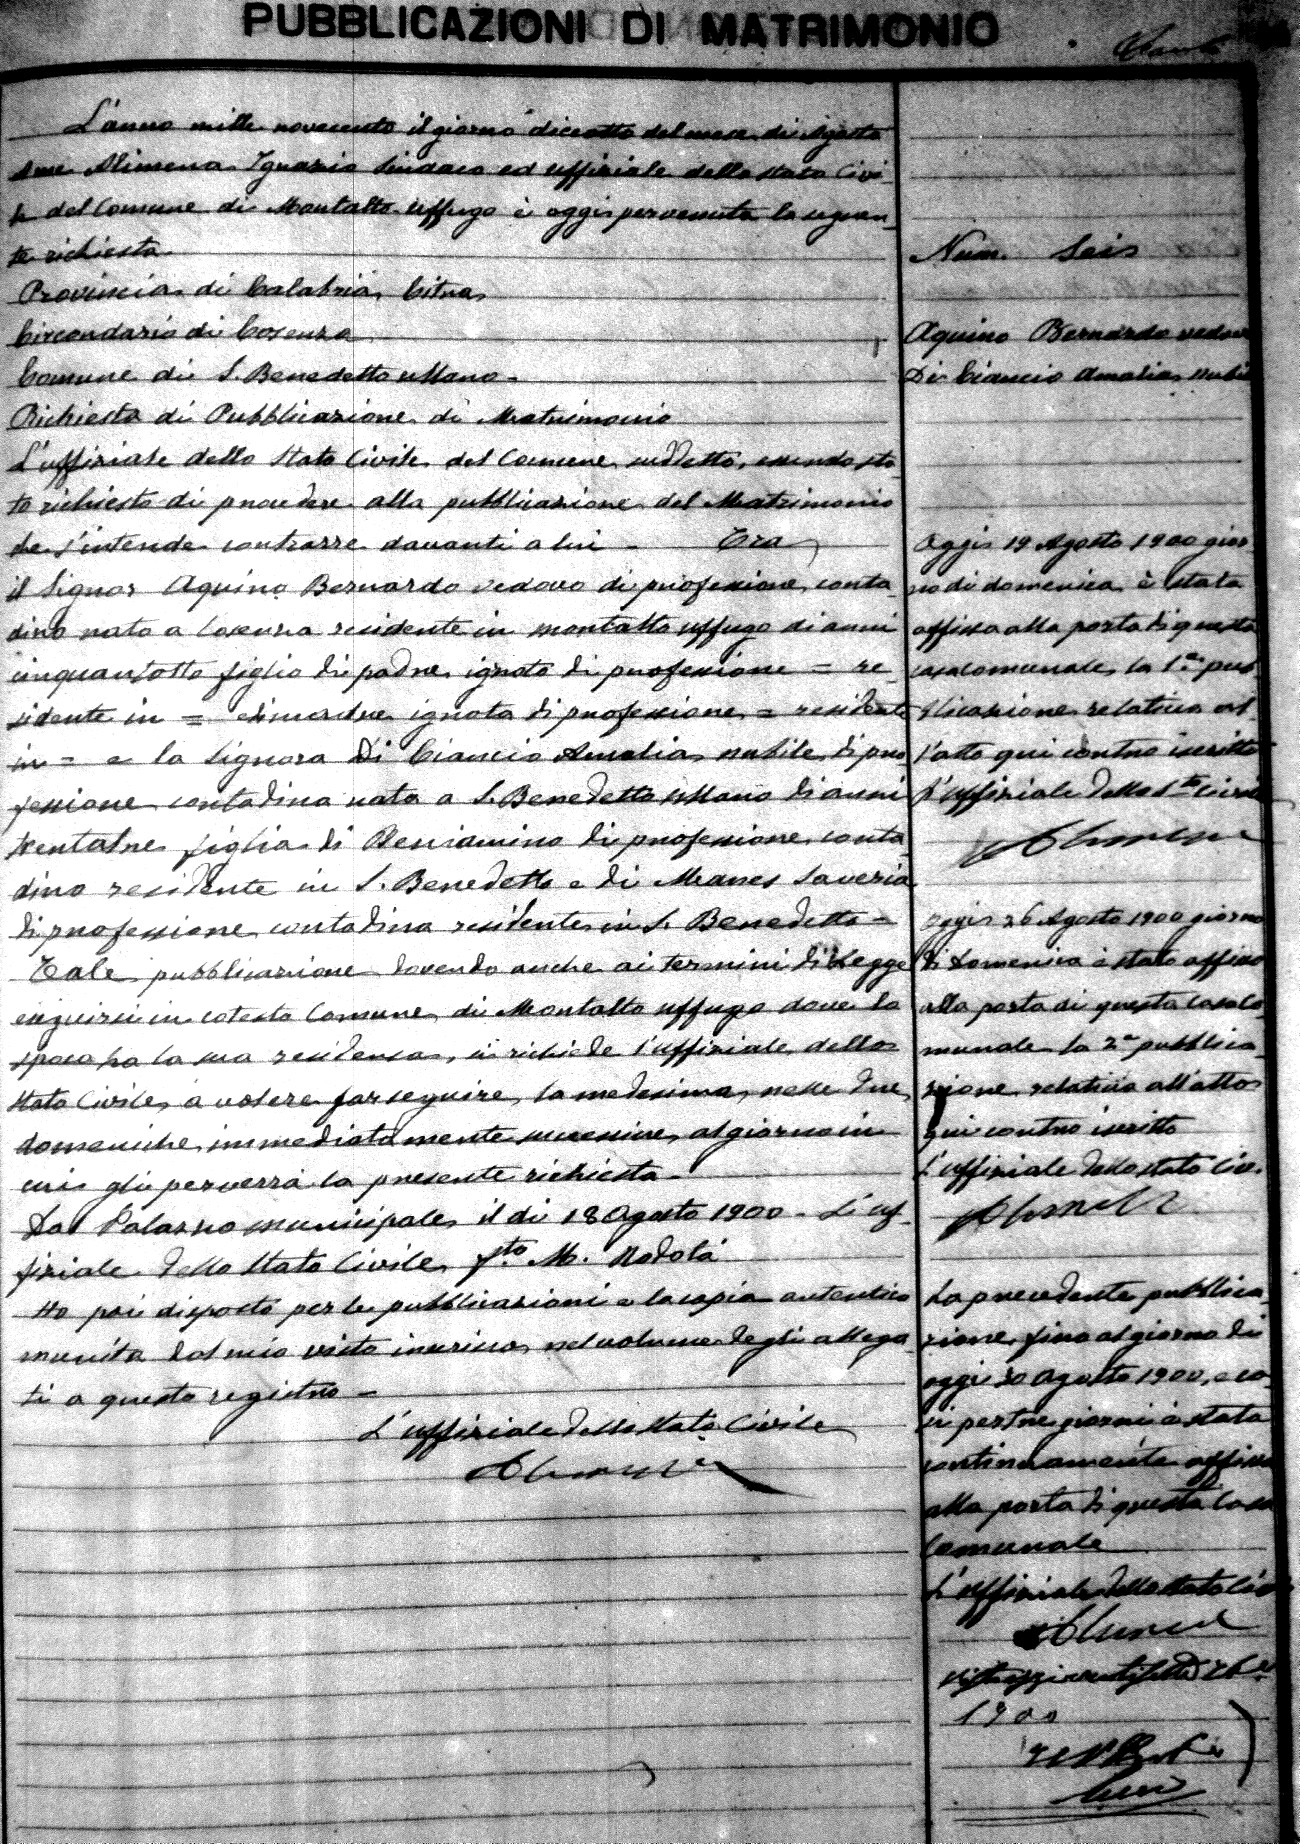 PUBBLICAZIONI DI MATRIMONIO
L'anno mille novecento il giorno diciotto del mese di Agosto
a me Alimena Ignazio Sindaco ed uffiziale dello stato Civi-
le del Comune di Montalto Uffugo è oggi pervenuta la seguen-
te richiesta
Provincia di Calabria Citra
Circondario di Cosenza
Comune di S. Benedetto Ullano -
Richiesta di Pubblicazione di Matrimonio
L'uffiziale dello Stato Civile del Comune suddetto, essendo sta-
to richiesto di provedere alla pubblicazione del Matrimonio
che s'intende contrarre davanti a lui - Tra
il Signor Aquino Bernardo vedovo di professione conta-
dino nato a Cosenza residente in Montalto Uffugo di anni
cinquantotto figlio di padre ignoto di professione = re-
sidente in = e di madre ignota di professione = residente
in = e la Signora Di Ciancio Amalia nubile di pro-
fessione contadina nata a S. Benedetto Ullano di anni
trentatre figlia di Beniamino di professione conta-
dino residente in S. Benedetto e di Manes Saveria
di professione contadina residente in S. Benedetto -
Tale pubblicazione dovendo anche ai termini di Legge
eseguirsi in cotesto Comune di Montalto Uffugo dove lo
sposo ha la sua residenza, si richiede l'uffiziale dello
Stato Civile, a volere far seguire la medesima, nelle due
domeniche immediatamente successive al giorno in
cui gli perverrà la presente richiesta -
Dal Palazzo municipale, il di 18 Agosto 1900 - L'uf-
fiziale dello Stato Civile f.to M. Rodotà
Ho poi disposto per le pubblicazioni e la copia autentica
munita dal mio visto inserisco nel volume degli allega-
ti a questo registro -
L'uffiziale dello Stato Civile
Alimena
Num. Seis
Aquino Bernardo vedovo
Di Ciancio Amalia nubile
Oggi 19 Agosto 1900 gior-
no di domenica è stata
affissa alla porta di questa
casa comunale la 1a pub-
blicazione relativa al-
l'atto qui contro iscritto
L'uffiziale dello Sto Civile
Alimena
Oggi 26 Agosto 1900 giorno
di domenica è stato affisso
alla porta di questa casa co-
munale la 2a pubblica-
zione relativa all'atto
qui contro iscritto
L'uffiziale dello stato Civ.
Alimena
La precedente pubblica-
zione fino al giorno di
oggi 30 Agosto 1900, e co-
si per tre giorni è stata
continuamente affissa
alla porta di questa Casa
Comunale
L'uffiziale dello Stato Civ.
Alimena
1900